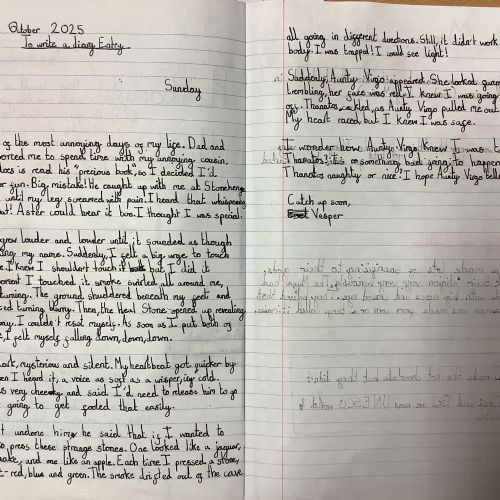 October 2025
To write a diary Entry.
Sunday
of the most annoying days of my life. Dad and
me to spend time with my annoying cousin,
does is read his "precious book, so I decided I'd
or fun. Big mistake! He caught up with me at Stonehenge
until my leg screamed with pain. I heard that whispering
out! Aster could hear it two. I thought I was special.
grew louder and louder until it sounded as though
ing my name. Suddenly, I felt a big urge to touch
I knew I shouldn't touch it but I did it
moment I touched it smoke swirled all around me,
turning. The ground shuddered beneath my feet and
turning blurry. Then, the Heal Stone opened up revealing
I couldn't resist myself. As soon as I put both of
I felt myself falling down, down, down.
dark, mysterious and silent. My heartbeat got quicker by
en I heard it, a voice as soft as a wisper, icy cold.
s very cheeky and said I'd need to release him to go
going to get fooled that easily.
t undone him, he said that if I wanted to
to press these strange stones. One looked like a jaguar,
snake, and me like an apple. Each time I pressed a stone,
t-red, blue and green. The smoke drifted out of the cave
all going in different directions. Still, it didn't work
body. I was trapped! I could see light!
Suddenly, Aunty Virgo appeared. She looked
trembling, her face was red. I knew I was going
of. Thanatos cackled as Aunty Virgo pulled me out
My heart raced but I knew I was safe.
I wonder how Aunty Virgo knew I was
Thanatos? Is something bad going to happen
Thanatos naughty or nice? I hope Aunty Virgo tells
Catch up soon,
Vesper